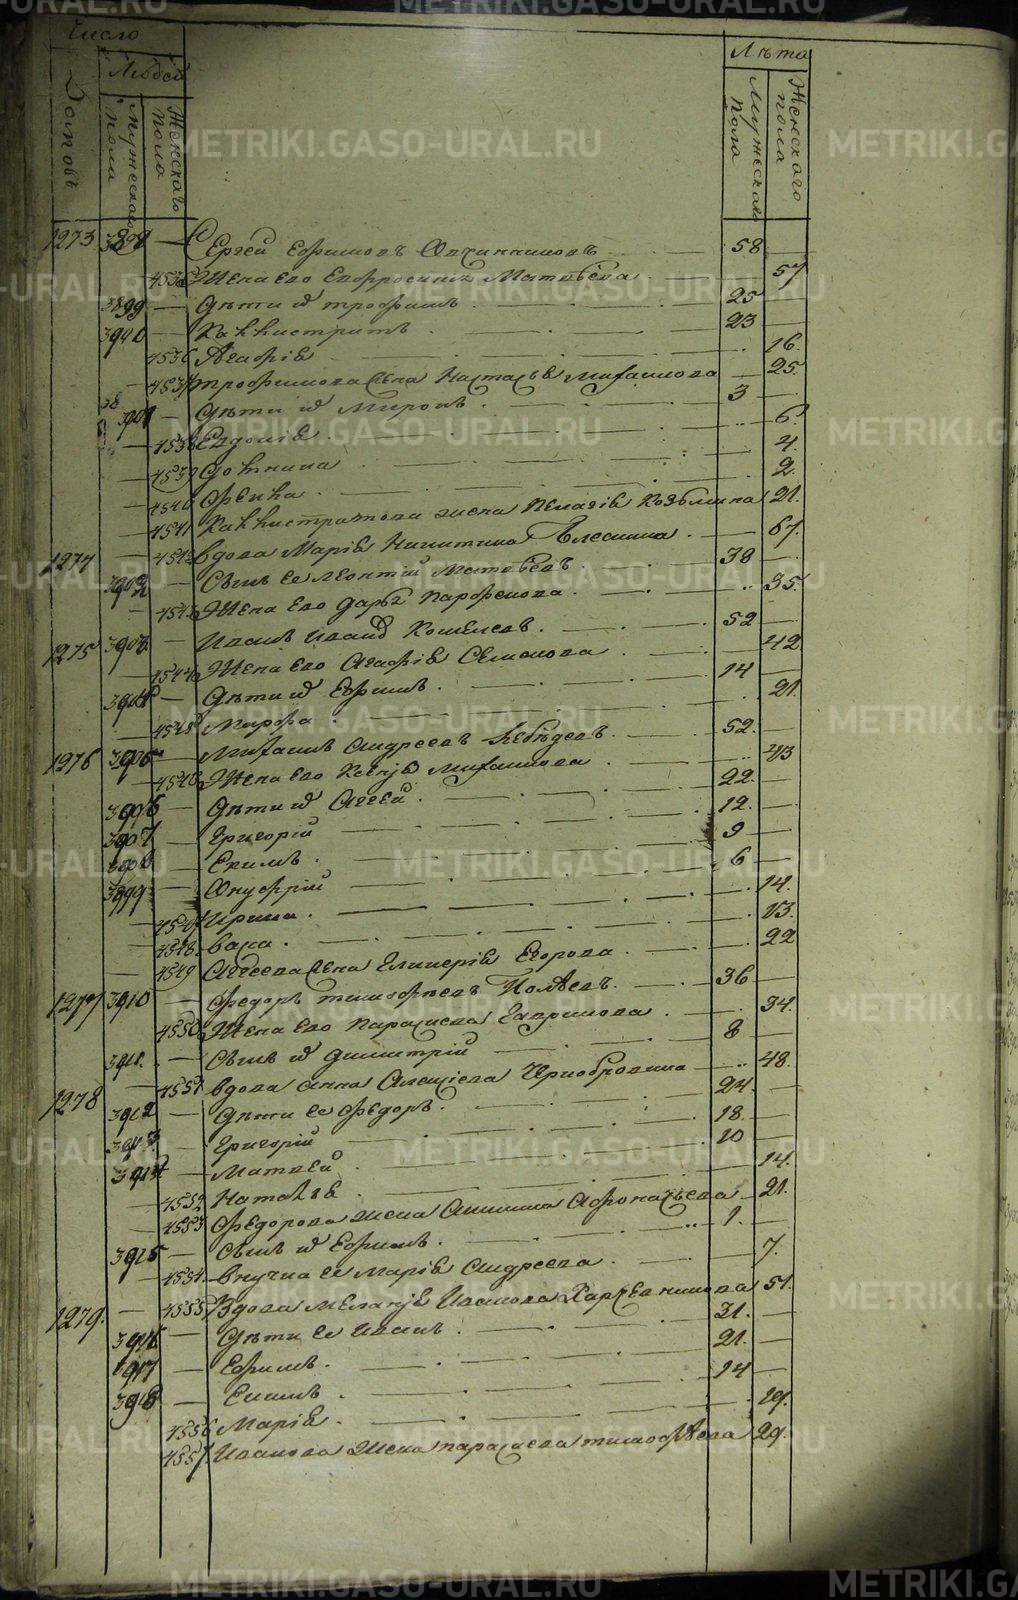 Число
Людей
Лѣта
Домовъ
Мужескаго пола
Женскаго пола
Мужескаго пола
Женскаго пола
1273 3898 — Сергей Ефимовъ Овчинниковъ 58 —
4535 Жена ево Евфросинія Матвѣева 57
3899 — Дѣти их трофимъ 25
3900 — Каллистратъ 23
4536 Агафія 16.
4537 трофимова жена Настасья михаилова 25.
3901 — Дѣти их Миронъ 3
4538 Евдокія 6.
4539 4.
4540 Фекла 2.
4541 Каллистратова жена Пелагія Козьмина 21.
1274 — 4542 вдова Марія Никитина 67.
3902 — Сынъ ее Леонтій Матвѣевъ 38 —
4543 Жена Ево Дарья Парфенова 35.
1275 3903 — Иванъ Иванов Кошелевъ 52 —
4544 Жена Ево Агафія Семенова 42
3904 — Дѣти их Ефимъ 14 —
4545 Марфа 21.
1276 3905 — Михаилъ Андреевъ Лебѣдевъ 52. —
4546 Жена Ево Ксенія Михаилова 43
3906 — Дѣти их Авдей 22. —
3907 — Григорій 12. —
3908 — Екимъ 9 —
3909 — Онуфрій 6 —
4547 Ирина 14.
4548 13.
4549 Авдеева жена Гликерія Егорова 22
1277 3910 — Федоръ тимофѣевъ 36 —
4550 Жена Ево Параскева Гаврилова 34.
3911 — Сынъ их Димитрій 8 —
1278 — 4551 вдова Анна Алексіева Чернобровина 48.
3912 — Дѣти ее Федоръ 24 —
3913 — Григорій 18 —
3914 — Матвей 10 —
4552 Наталья 14.
4553 Федорова жена Акилина Афонасьева 21.
3915 — Сынъ их Ефимъ 1. —
4554 внучка ее Марія Андреева 7.
1279. — 4555 Вдова меланія Иванова 51.
3916 — Дѣти ее Иванъ 31. —
3917 — Ефимъ 21. —
3918 — Екимъ 14 —
4556 Марія 19.
4557 Иванова жена параскева тимофѣева 29.
METRIKI.GASO-URAL.RU